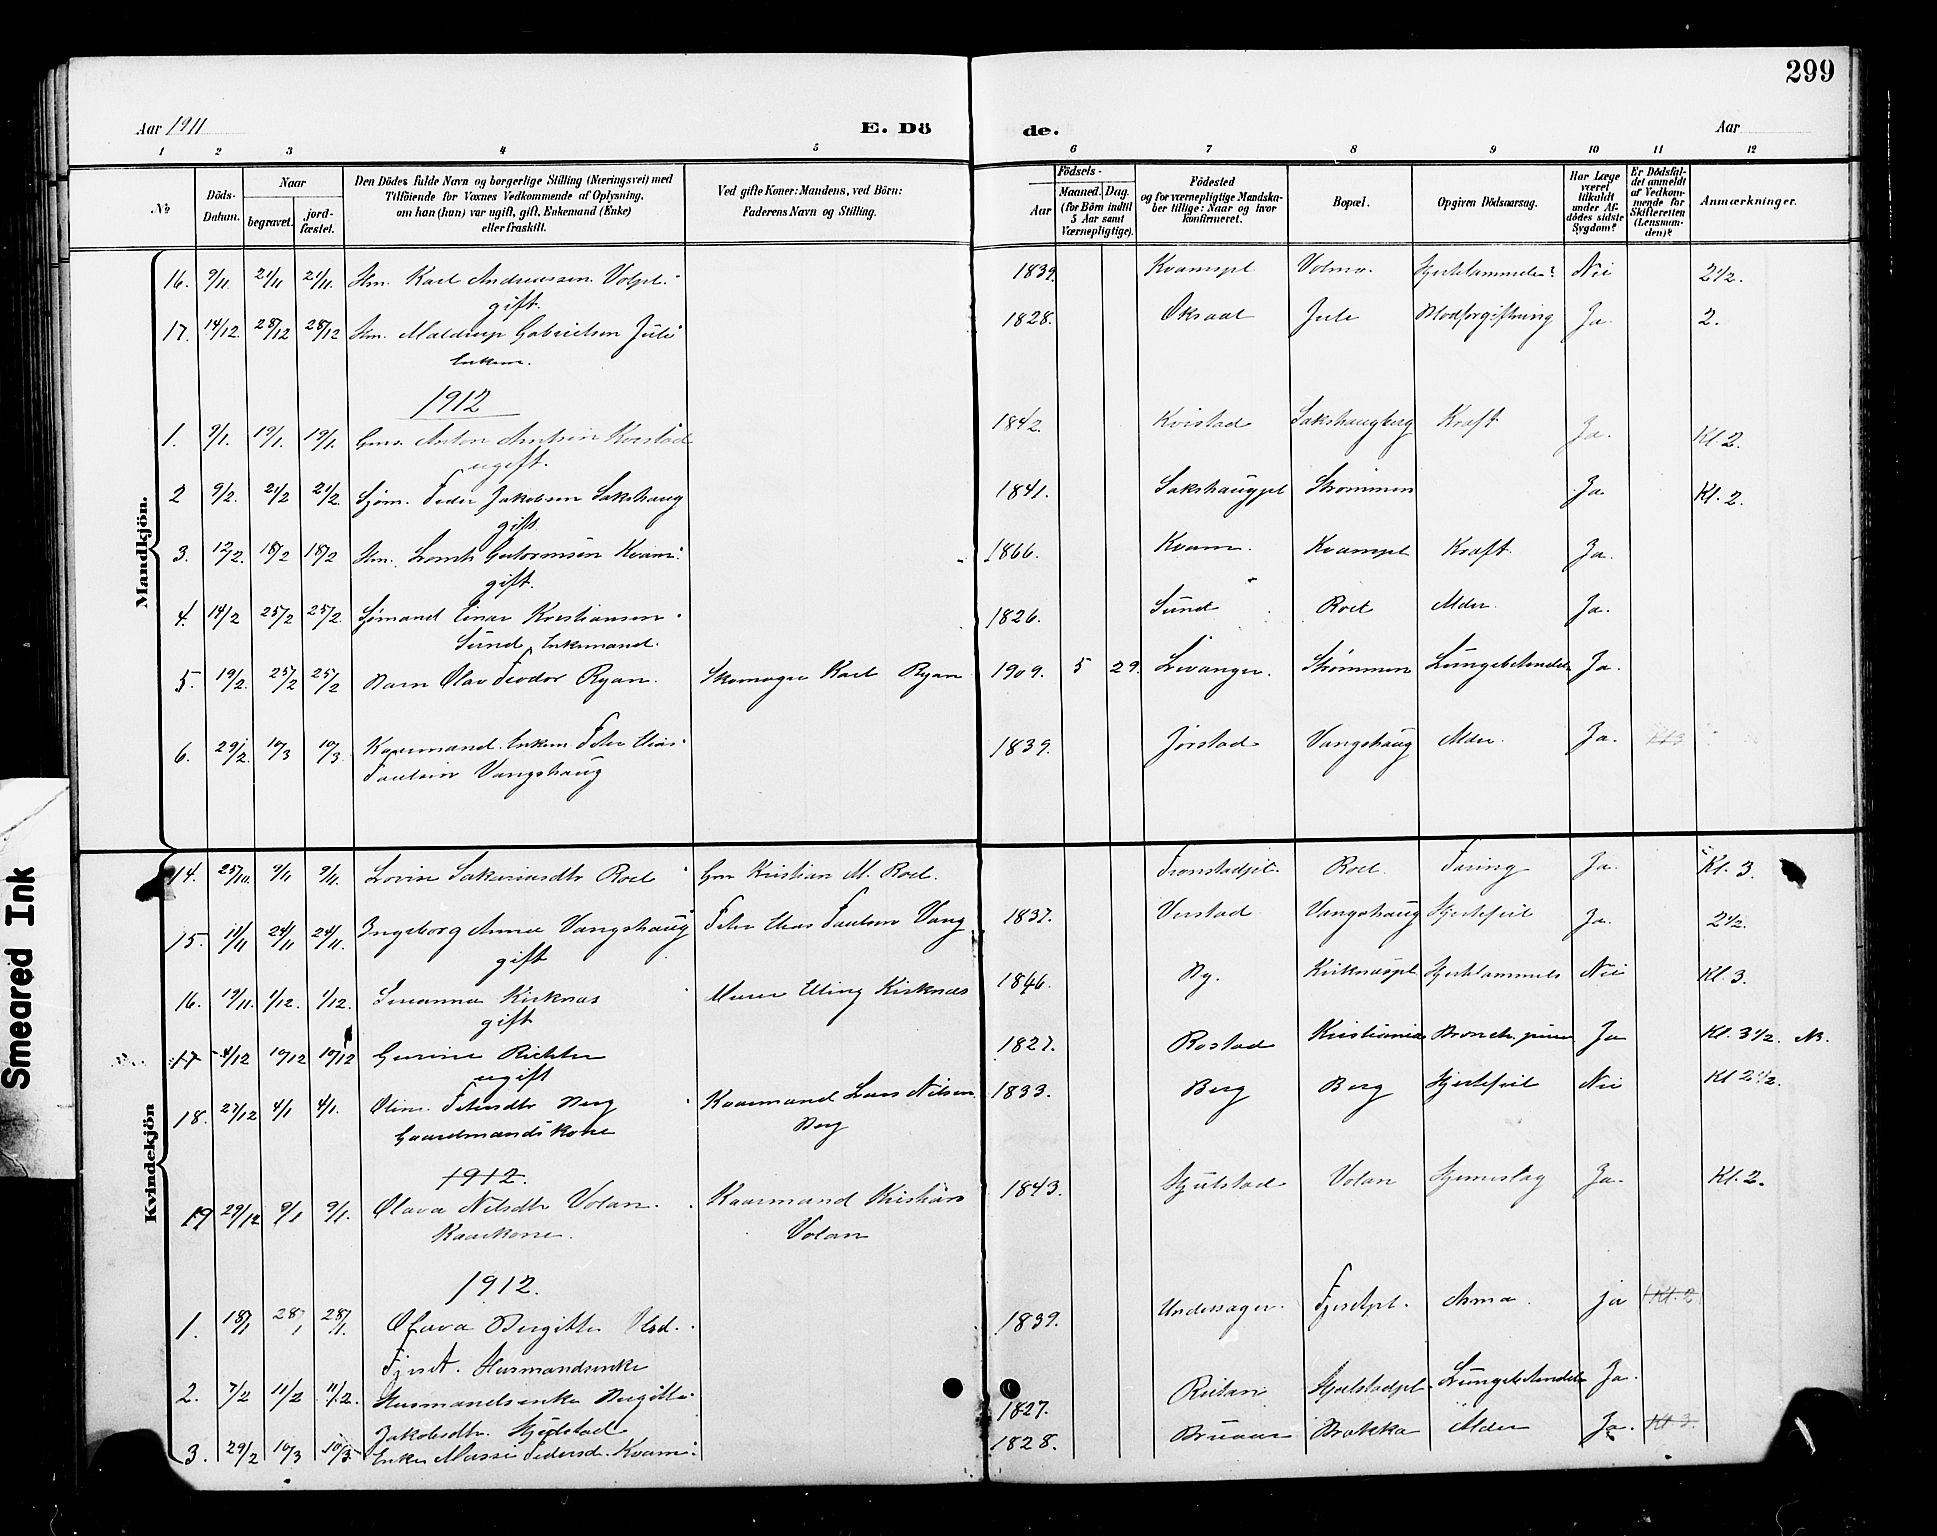 299
Aar 1911
E. Dö
de.
Aar
1 2 3 4 5 6 7 8 9 10 11 12
№
Döds-Datum.
Naar
begravet.
jord-fæstet.
Den Dödes fulde Navn og borgerlige Stilling (Næringsvei) med
Tilföiende for Voxnes Vedkommende af Oplysning,
om han (hun) var ugift, gift, Enkemand (Enke)
eller fraskilt.
Ved gifte Koner: Mandens, ved Börn:
Faderens Navn og Stilling.
Födsels-
Aar
Maaned. Dag.
(for Börn indtil
5 Aar samt
Værnepligtige).
Födested
og for værnepligtige Mandska-
ber tillige: Naar og hvor
konfirmeret.
Bopæl.
Opgiven Dödsaarsag.
Har Læge
været
tilkaldt
under Af-
dödes sidste
Sygdom?
Er Dödsfal-
det anmeldt
af Vedkom-
mende for
Skifteretten
(Lensman-
den)?
Anmærkninger.
Mandkjön.
16. 9/11. 21/11 21/11. Hm. Karl Andreassen 1839. Kvamspl Nei 2 1/2.
gift.
17. 14/12. 28/12 28/12 Hm. Gabrielsen Juli 1828. Jule Blodforgiftning Ja. 2.
Enkem.
1912
1. 9/1. 19/1. 19/1. Anton Kvistad 1842. Kvistad Sakshaugberg Kræft Ja. Kl 2.
ugift.
2 9/2. 21/2 21/2. Sjøm. Peder Jakobsen Sakshaug 1841. Sakshaugpl Strømmen Ja Kl. 2.
gift.
3. 12/2. 18/2 18/2 Hm. Kvam 1866. Kvam. Kvampl Kræft. Ja.
gift.
4. 14/2 25/2 25/2. Sjømand Einar Kristiansen 1826. Sund Roel Alder. Ja.
Sund, Enkemand.
5. 19/2. 25/2 25/2 Barn Olav Teodor Ryan. Skomager Karl Ryan 1909. 5 29. Levanger. Strømmen Ja.
6. 29/2. 10/3 10/3. Kaarmand Enkem. Peter Elias 1839. Jørstad Vangshaug Alder. Ja.
Paulsen Vangshaug
Kvindekjön
14. 25/10. 9/11 9/11. Lovise Sakariasdtr Roel Gm Kristian M. Roel. Roel. Tæring Ja. Kl. 3.
15. 11/11 24/11 24/11. Ingeborg Anna Vangshaug Peter Elias Paulsen Vang 1837. Verstad Vangshaug Hjertefeil Ja. 2 1/2.
gift
16. 19/11. 1/12. 1/12. Susanna Kirknæs Murer Elling Kirknæs 1846. By. Kirknæspl Nei Kl. 3.
gift
17 4/12 19/12 19/12 Gurine Richter 1827. Rostad Kristiania Ja Kl. 3 1/2. NB.
ugift
18. 27/12 4/1 4/1. Petersdtr Berg Kaarmand Lars Nilsen 1833. Berg Berg Hjertefeil Nei Kl 2 1/2.
Gaardmandskone Berg
1912.
19 29/12 9/1 9/1. Olava Nilsdtr Volan. Kaarmand Kristian 1843. Hjulstad Volan Hjerneslag Ja. Kl. 2.
Kaarkone. Volan
1912.
1. 18/1 28/1 28/1. Olava Bergitte 1839. Undersager. Asma. Ja Kl. 2
Husmandsenke
2. 7/2 11/2 11/2. Husmandsenke Bergitte 1827. Ristan Ja.
Jakobsdtr. Hjulstad
3. 29/2 10/3 10/3 Enke Pedersd. Kvam 1828. Bruaar Brakka Alder Ja. Kl 3.
Smeared Ink